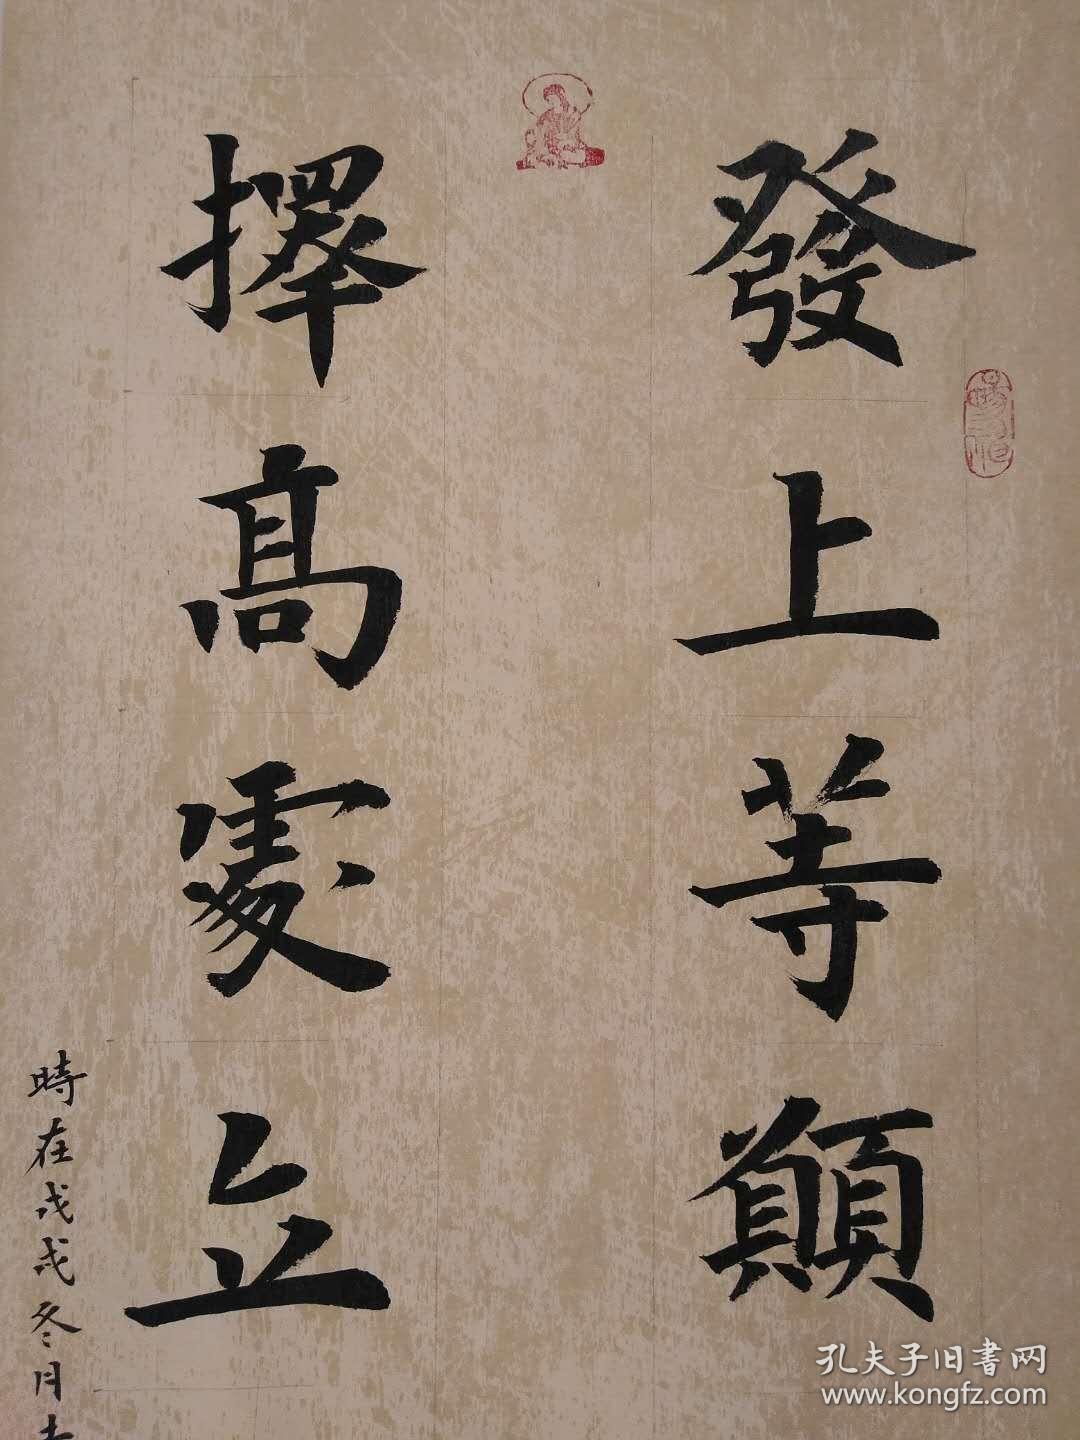 發上等願
擇高處立
時在戊戌冬月
孔夫子旧書网
www.kongfz.com